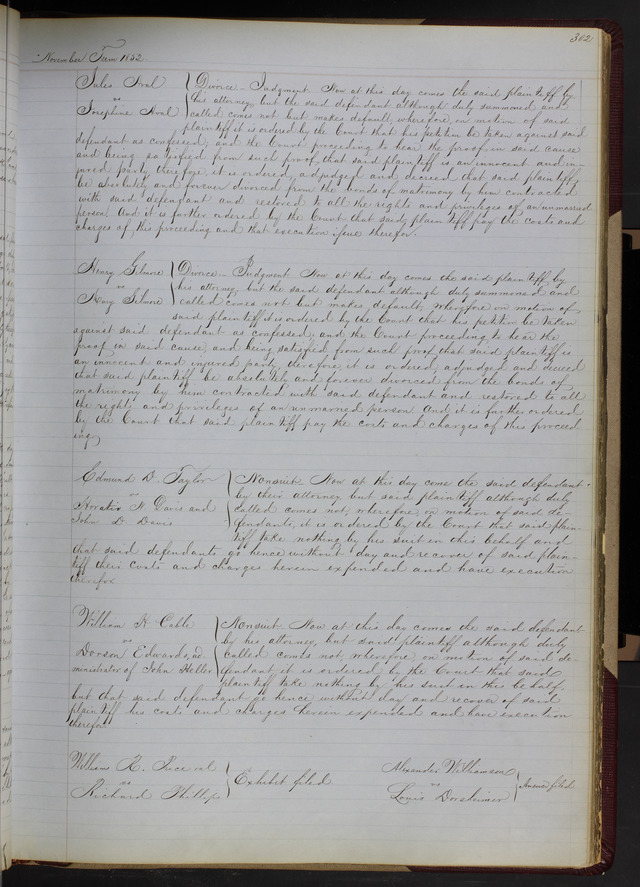 302
November Term 1852
Jules Aval } Divorce - Judgment Now at this day comes the said plaintiff by
vs his attorney but the said defendant although duly summoned and
Josephine Aval called comes not but makes default, wherefore, on motion of said
plaintiff it is ordered by the Court that his petition be taken against said
defendant as confessed, and the Court proceeding to hear the proof in said cause
and being satisfied from such proof, that said plaintiff is an innocent and in-
jured party, therefore, it is ordered, adjudged and decreed that said plaintiff
be absolutely and forever divorced from the bonds of matrimony by him contracted
with said defendant and restored to all the rights and privileges of an unmarried
person. And it is further ordered by the Court that said plaintiff pay the costs and
charges of this proceeding and that execution issue therefor.
Henry Gilmore } Divorce - Judgment Now at this day comes the said plaintiff by
vs his attorney, but the said defendant although duly summoned and
Mary Gilmore called comes not but makes default, Wherefore on motion of
said plaintiff it is ordered by the Court that his petition be taken
against said defendant as confessed, and the Court proceeding to hear the
proof in said cause, and being satisfied from such proof that said plaintiff is
an innocent and injured party, therefore, it is ordered, adjudged and decreed
that said plaintiff be absolutely and forever divorced from the bonds of
matrimony by him contracted with said defendant and restored to all
the rights and privileges of an unmarried person. And it is further ordered
by the Court that said plaintiff pay the costs and charges of this proceed
ing
Edmund D. Taylor } Nonsuit. Now at this day come the said defendant
vs by their attorney but said plaintiff although duly
Horatio N Davis and called comes not, wherefore, on motion of said de-
John D Davis fendants, it is ordered by the Court that said plain-
tiff take nothing by his suit in this behalf and
that said defendants go hence without day and recover of said plain-
tiff their costs and charges herein expended and have execution
therefor
William H. Cable } Nonsuit. Now at this day comes the said defendant
vs by his attorney, but said plaintiff although duly
Dorson Edwards, ad called comes not, wherefore, on motion of said de-
ministrator of John Heller fendant, it is ordered by the Court that said
plaintiff take nothing by his suit in this behalf,
but that said defendant go hence without day and recover of said
plaintiff his costs and charges herein expended and have execution
therefor
William R. Percival } Exhibit filed
vs
Richard Phillips
Alexander Williamson } Answer filed
vs
Louis Dorsheimer